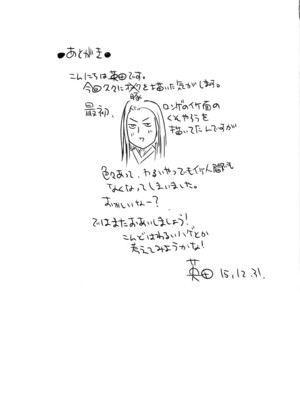 ●あとがき●
こんにちは英田です。
今回スタにオメタを描いた気がします。
豚
最初、
ロンゲのイケ面の
くそやろうを
描いてたんですが
色々あって、わるいやつでもイケ人間でも
なくなってしまいました。
おかしいなー?
ではまたおあいしましょう!
こんどはわるいハゲとか
考えてみようかな!
英田 15.12.31.